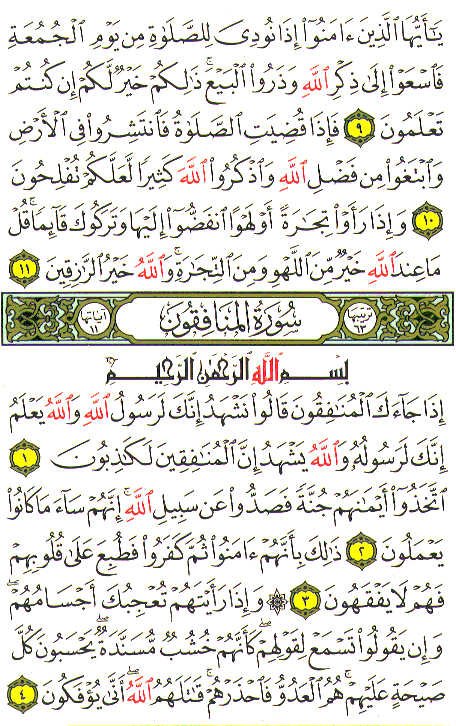 يَـٰٓأَيُّهَا ٱلَّذِينَ ءَامَنُوٓا۟ إِذَا نُودِىَ لِلصَّلَوٰةِ مِن يَوْمِ ٱلْجُمُعَةِ
فَٱسْعَوْا۟ إِلَىٰ ذِكْرِ ٱللَّهِ وَذَرُوا۟ ٱلْبَيْعَ ۚ ذَٰلِكُمْ خَيْرٌ لَّكُمْ إِن كُنتُمْ
تَعْلَمُونَ ٩ فَإِذَا قُضِيَتِ ٱلصَّلَوٰةُ فَٱنتَشِرُوا۟ فِى ٱلْأَرْضِ
وَٱبْتَغُوا۟ مِن فَضْلِ ٱللَّهِ وَٱذْكُرُوا۟ ٱللَّهَ كَثِيرًا لَّعَلَّكُمْ تُفْلِحُونَ
١٠ وَإِذَا رَأَوْا۟ تِجَـٰرَةً أَوْ لَهْوًا ٱنفَضُّوٓا۟ إِلَيْهَا وَتَرَكُوكَ قَآئِمًا ۚ قُلْ
مَا عِندَ ٱللَّهِ خَيْرٌ مِّنَ ٱللَّهْوِ وَمِنَ ٱلتِّجَـٰرَةِ ۚ وَٱللَّهُ خَيْرُ ٱلرَّٰزِقِينَ ١١
ترتيبها ٦٣ سُورَةُ المُنَافِقُونَ آياتها ١١
بِسْمِ ٱللَّهِ ٱلرَّحْمَـٰنِ ٱلرَّحِيمِ
إِذَا جَآءَكَ ٱلْمُنَـٰفِقُونَ قَالُوا۟ نَشْهَدُ إِنَّكَ لَرَسُولُ ٱللَّهِ ۗ وَٱللَّهُ يَعْلَمُ
إِنَّكَ لَرَسُولُهُۥ وَٱللَّهُ يَشْهَدُ إِنَّ ٱلْمُنَـٰفِقِينَ لَكَـٰذِبُونَ ١
ٱتَّخَذُوٓا۟ أَيْمَـٰنَهُمْ جُنَّةً فَصَدُّوا۟ عَن سَبِيلِ ٱللَّهِ ۚ إِنَّهُمْ سَآءَ مَا كَانُوا۟
يَعْمَلُونَ ٢ ذَٰلِكَ بِأَنَّهُمْ ءَامَنُوا۟ ثُمَّ كَفَرُوا۟ فَطُبِعَ عَلَىٰ قُلُوبِهِمْ
فَهُمْ لَا يَفْقَهُونَ ٣ ۞ وَإِذَا رَأَيْتَهُمْ تُعْجِبُكَ أَجْسَامُهُمْ ۖ
وَإِن يَقُولُوا۟ تَسْمَعْ لِقَوْلِهِمْ ۖ كَأَنَّهُمْ خُشُبٌ مُّسَنَّدَةٌ ۖ يَحْسَبُونَ كُلَّ
صَيْحَةٍ عَلَيْهِمْ ۚ هُمُ ٱلْعَدُوُّ فَٱحْذَرْهُمْ ۚ قَـٰتَلَهُمُ ٱللَّهُ ۖ أَنَّىٰ يُؤْفَكُونَ ٤